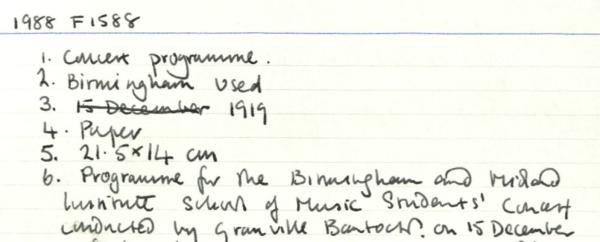 1988 F1588
1. Concert programme.
2. Birmingham used
3. 15 December 1919
4. Paper
5. 21.5×14 cm
6. Programme for the Birmingham and Midland
Institute School of Music Students' Concert
conducted by Granville Bantock. on 15 December